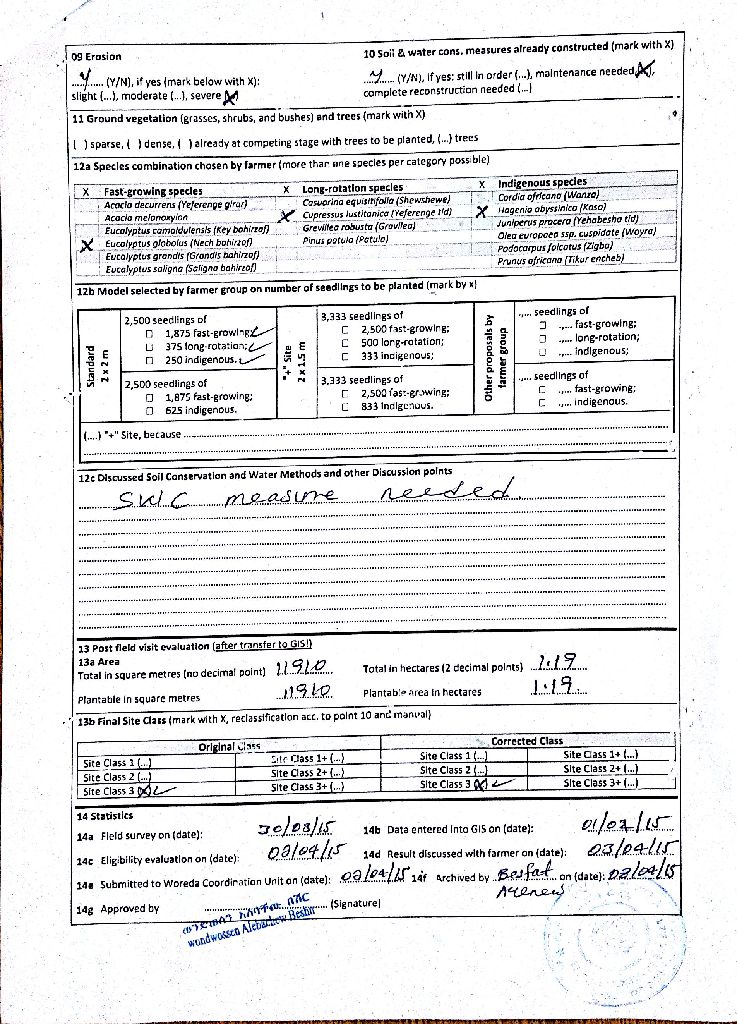 09 Erosion
10 Soil & water cons. measures already constructed (mark with X)
Y (Y/N), if yes (mark below with X):
Y (Y/N), if yes: still in order (...), maintenance needed (X),
slight (...), moderate (...), severe (X)
complete reconstruction needed (...)
11 Ground vegetation (grasses, shrubs, and bushes) and trees (mark with X)
( ) sparse, ( ) dense, ( ) already at competing stage with trees to be planted, (...) trees
12a Species combination chosen by farmer (more than one species per category possible)
X Fast-growing species X Long-rotation species X Indigenous species
Acacia decurrens (Yeferenge girar) Casuarina equisitifolia (Shewshewe) Cordia africana (Wanza)
Acacia melonoxylon X Cupressus lustitanica (Yeferenge tid) X Hagenia abyssinica (Koso)
Eucalyptus camaldulensis (Key bahirzaf) Grevillea robusta (Gravilea) Juniperus procera (Yehabesha tid)
X Eucalyptus globolus (Nech bahirzaf) Pinus patula (Patula) Olea europaea ssp. cuspidate (Woyra)
Eucalyptus grandis (Grandis bahirzaf) Podocarpus falcatus (Zigba)
Eucalyptus saligna (Saligna bahirzaf) Prunus africana (Tikur encheb)
12b Model selected by farmer group on number of seedlings to be planted (mark by x)
Standard 2 x 2 m
2,500 seedlings of
1,875 fast-growing; ✓
375 long-rotation; ✓
250 indigenous. ✓
2,500 seedlings of
1,875 fast-growing;
625 indigenous.
"+" Site 2 x 1.5 m
3,333 seedlings of
2,500 fast-growing;
500 long-rotation;
333 indigenous;
3,333 seedlings of
2,500 fast-growing;
833 indigenous.
Other proposals by farmer group
.,... seedlings of
.,... fast-growing;
.,... long-rotation;
.,... indigenous;
.,... seedlings of
.,... fast-growing;
.,... indigenous.
(....) "+" Site, because
12c Discussed Soil Conservation and Water Methods and other Discussion points
SWC measure needed
13 Post field visit evaluation (after transfer to GIS!)
13a Area
Total in square metres (no decimal point) 11910 Total in hectares (2 decimal points) 1.19
Plantable in square metres 11910 Plantable area in hectares 1.19
13b Final Site Class (mark with X, reclassification acc. to point 10 and manual)
Original Class Corrected Class
Site Class 1 (...) Site Class 1+ (...) Site Class 1 (...) Site Class 1+ (...)
Site Class 2 (...) Site Class 2+ (...) Site Class 2 (...) Site Class 2+ (...)
Site Class 3 (X) ✓ Site Class 3+ (...) Site Class 3 (X) ✓ Site Class 3+ (...)
14 Statistics
14a Field survey on (date): 30/03/15 14b Data entered into GIS on (date): 01/02/15
14c Eligibility evaluation on (date): 02/04/15 14d Result discussed with farmer on (date): 03/04/15
14e Submitted to Woreda Coordination Unit on (date): 02/04/15 14f Archived by on (date): 02/04/15
14g Approved by (Signature)
wondwossen Alebachew Beshir